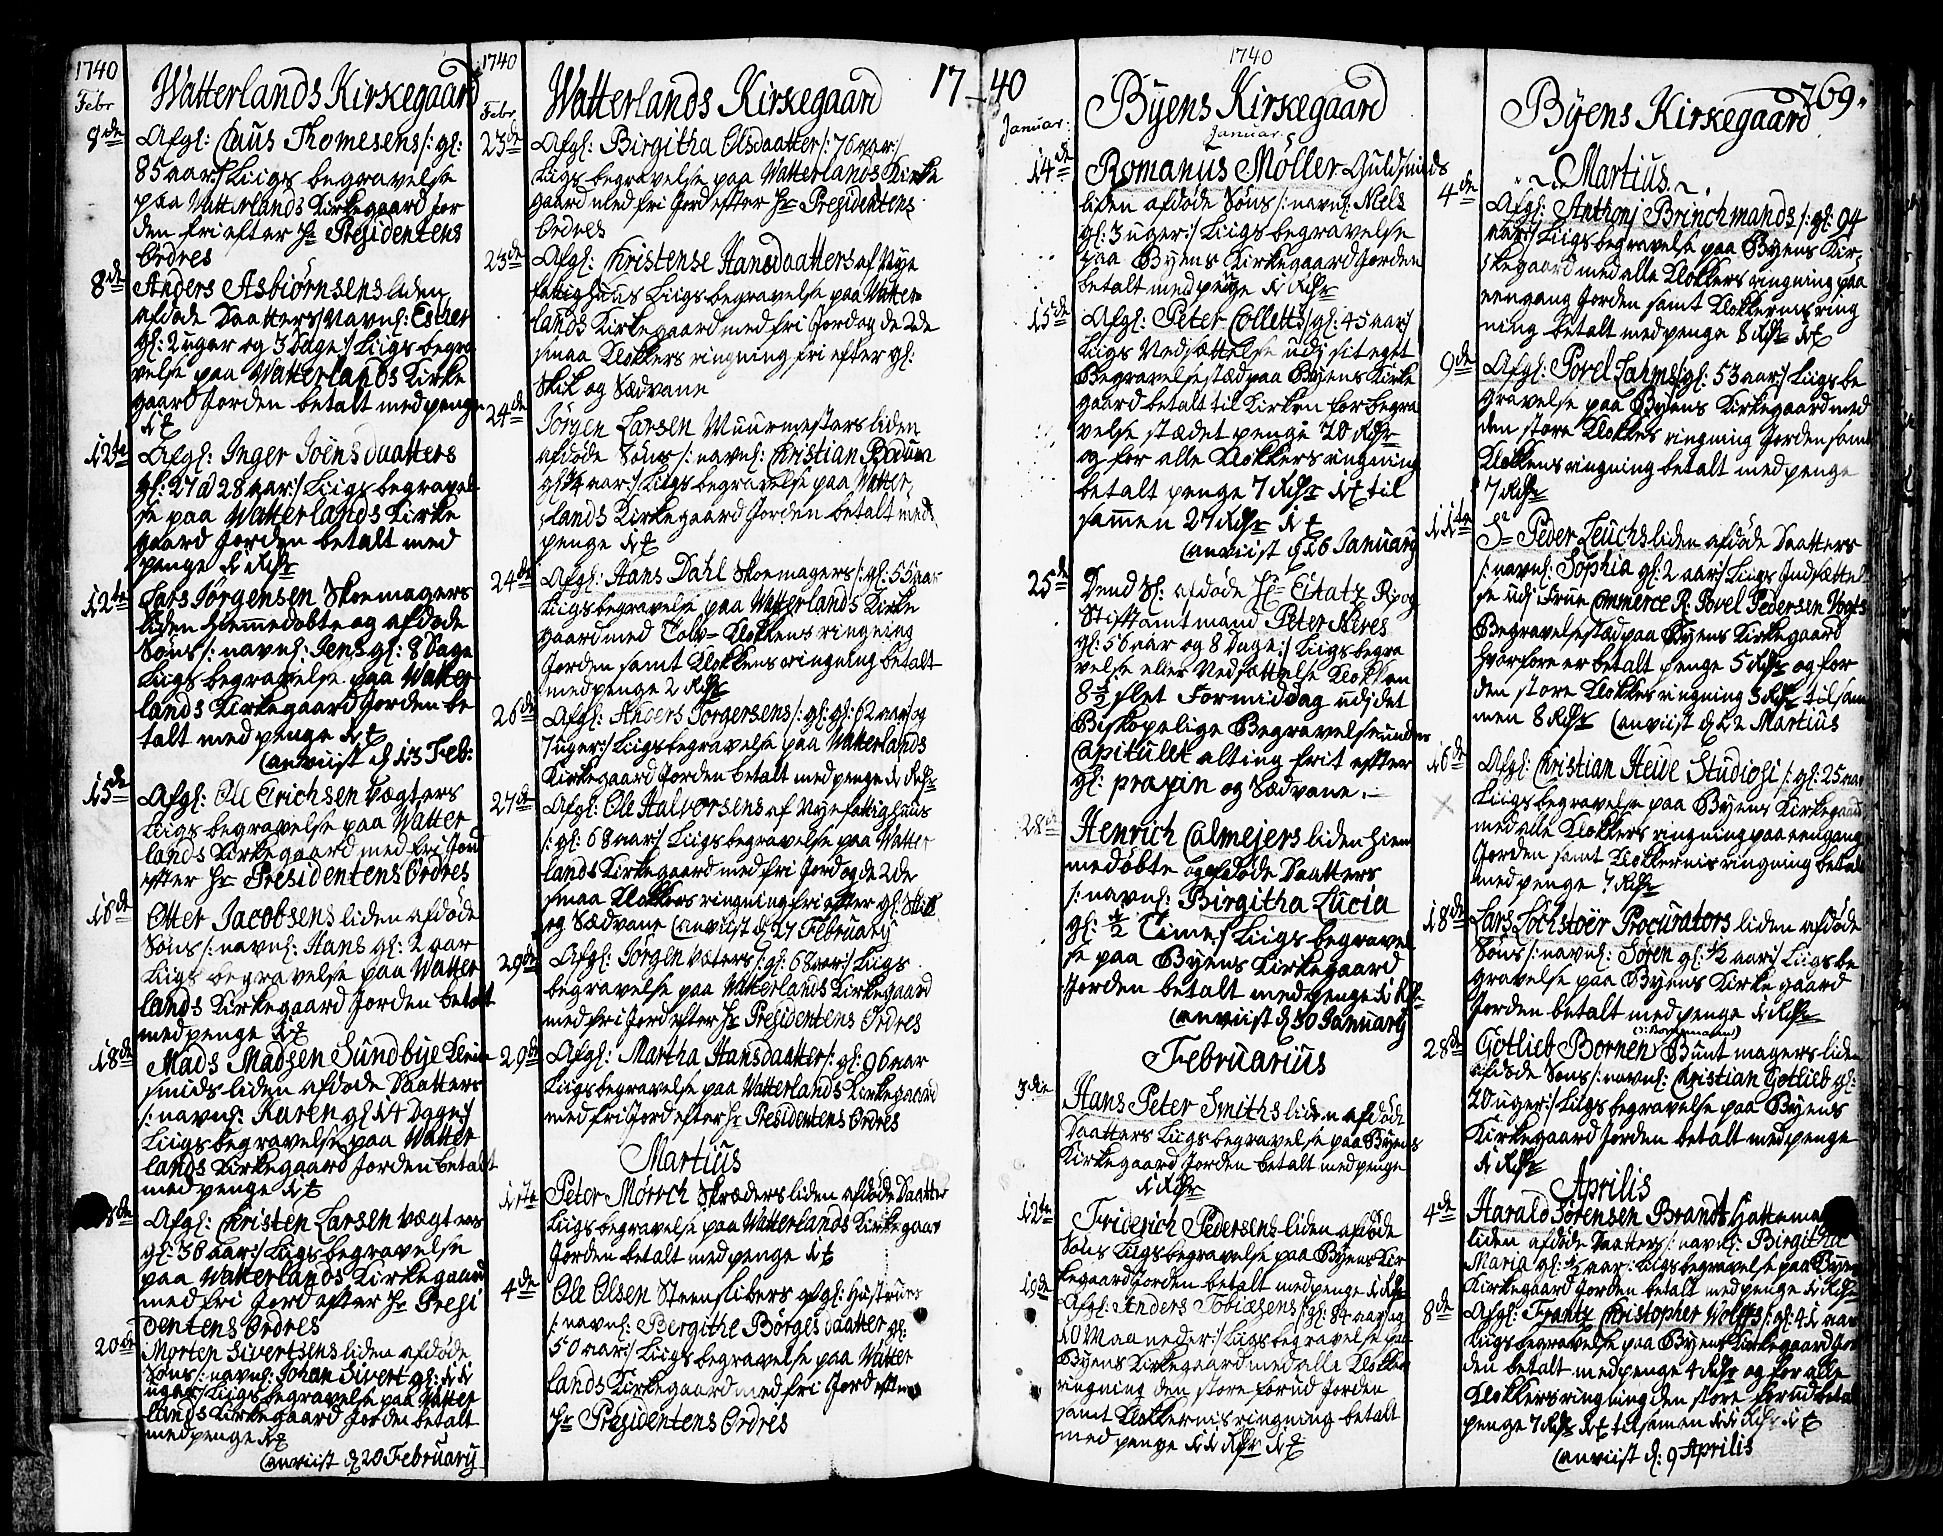 1740
Febr
Watterlands Kirkegaard
8de Afgl: Claus Thomesens /: gl:
85 aar:/ Liigs begravelse
paa Watterlands Kirkegaard Jor
den fri efter Hr Presidentens
Ordres
8de Anders Asbiörnsens liden
afdöde Daatters /Navnl: Esther
gl: 2 uger og 3 Dage:/ Liigs begra
velse paa Watterlands Kirke
gaard Jorden betalt med penge
12te Afgl: Inger Joens daatters
gl: 27 a 28 aar:/ Liigs begravel
se paa Watterlands Kirke
gaard Jorden betalt med
penge 1 Rdr
12te Lars Jörgensen Skoemagers
liden Hiemmedöbte og afdöde
Söns /: navnl: Jens gl: 8 Dage
Liigs begravelse paa Watter
lands Kirkegaard Jorden be
talt med penge
Anviist d 13 Feb:
15de Afgl: Ole Erichsen Vægters
Liigs begravelse paa Watter
lands Kirkegaard med fri Jord
efter Hr Presidentens Ordres
16de Otter Jacobsens liden afdöde
Söns /: navnl: Hans gl: 2 aar
Liigs begravelse paa Watter
lands Kirkegaard Jorden betalt
med penge
18de Mads Madsen Sundbye Klein
smids liden afdöde Daatters
/: navnl: Karen gl 14 Dage:/
Liigs begravelse paa Watter
lands Kirkegaard Jorden betalt
med penge
18de Afgl: Christen Larsen Vægters
gl: 36 aar:/ Liigs begravelse
paa Watterlands Kirkegaard
med fri Jord efter Hr Presi
dentens Ordres
20de Morten Sivertsens liden afdöde
Söns /: navnl: Johan Sivert gl: 11
uger:/ Liigs begravelse paa Watter
lands Kirkegaard Jorden betalt
med penge
Anviist d 20 February
1740
Febr
Watterlands Kirkegaard 17
23de Afgl: Birgitha Olsdaatter /: 76 aar:/
Liigs begravelse paa Watterlands Kirke
gaard med fri Jord efter Hr Presidentens
Ordres
23de Afgl: Christense Hansdaatters af Nye
fattighuus Liigs begravelse paa Watter
lands Kirkegaard med fri Jord og de 2de
smaa Klokkers ringning fri efter gl:
Skik og Sædvane
24de Jörgen Larsen Muurmesters liden
afdöde Söns /: navnl: Christian Bodum
aar:/ Liigs begravelse paa Watter
lands Kirkegaard Jorden betalt med
penge
24de Afgl: Hans Dahl Skoemagers /: gl: 55 aar
Liigs begravelse paa Watterlands Kirke
gaard med Tolv Klokkens ringning
Jorden samt Klokkens ringning betalt
med penge 2 Rdr
26de Afgl: Anders Torgersens /: gl: gl: 62 aar og
7 uger:/ Liigs begravelse paa Watterlands
Kirkegaard Jorden betalt med penge 1 Rdr
27de Afgl: Ole Halvorsens af Nye fattighuus
/: gl: 68 aar:/ Liigs begravelse paa Watter
lands Kirkegaard med fri Jord og de 2de
smaa Klokkers ringning fri efter gl: Skik
og Sædvane Anviist d 27 February
29de Afgl: Jörgen Væters /: gl: 68 aar:/ Liigs
begravelse paa Watterlands Kirkegaard
med fri Jord efter Hr Presidentens Ordres
29de Afgl: Martha Hansdaatter /: gl: 96 aar
Liigs begravelse paa Watterlands Kirkegaard
med fri Jord efter Hr Presidentens Ordres
Martius
Peter Mörsch Skræders liden afdöde Daatter
Liigs begravelse paa Watterlands Kirkegaar
Jorden betalt med penge
4de Ole Olsen Steenslibers afgl: Hustrues
/: navnl: Bergithe Börgesdaatter gl:
50 aar:/ Liigs begravelse paa Watter
lands Kirkegaard med fri Jord efter
Hr Presidentens Ordres
40
1740
Januar:
Byens Kirkegaard
Januar:
14de Romanus Möller Guldsmids
liden afdöde Söns /: navnl: Niels
gl: 3 uger:/ Liigs begravelse
paa Byens Kirkegaard Jorden
betalt med penge 1 Rdr
15de Afgl: Peter Colletts /gl: 45 aar:/
Liigs Nedsættelse udi sit eget
Begravelse stæd paa Byens Kirke
gaard betalt til Kirken for begra
velse stædet penge 20 Rdr
og for alle Klokkers ringning
betalt penge 7 Rdr til
sammen 27 Rdr
Anviist d 16 January
25de Dend Sl: afdöde Hr Etatz R: og
Stiftamtmand Peter Neves
gl: 56 aar og 8 Dage:/ Liigs begra
velse eller Nedsættelse Klokken
8 1/2 slet Formiddag udi det
Biskopelige Begravelse under
Capitulet alting frit efter
gl: praxin og Sædvane
28de Henrich Calmejers liden hiem
medöbte og afdöde Daatters
/: navnl: Birgitha Lucia
gl: 1/2 Time:/ Liigs begravel
se paa Byens Kirkegaard
Jorden betalt med penge 1 Rdr
Anviist d 30 January
Februarius
3die Hans Peter Smiths liden afdöde
Daatters Liigs begravelse paa Byens
Kirkegaard Jorden betalt med penge
1 Rdr
12te Friderich Pedersens liden afdöde
Söns Liigs begravelse paa Byens Kir
kegaard Jorden betalt med penge 1 Rdr
19de Afgl: Anders Tobiæsens /gl: 84 aar og
10 Maaneder:/ Liigs begravelse paa
Byens Kirkegaard med alle Klokker
ringning den store forud Jorden
samt Klokkernis ringning betalt
med penge 11 Rdr
269
Byens Kirkegaard
Martius
4de Afgl: Anthonj Brinchmands /: gl: 94
aar:/ Liigs begravelse paa Byens Kir
kegaard med alle Klokkers ringning paa
eengang Jorden samt Klokkernis ring
ning betalt med penge 8 Rdr
9de Afgl: Povel Lahms /gl: 53 aar:/ Liigs be
gravelse paa Byens Kirkegaard med
den store Klokkes ringning Jorden samt
Klokkens ringning betalt med penge
7 Rdr
11te Sr Peder Leuchs liden afdöde Daatters
/: navnl: Sophia gl: 2 aar:/ Liigs Indsættel
se udi Frue Commerce R: Povel Pedersen Vogts
Begravelse stæd paa Byens Kirkegaard
hvorfore er betalt penge 5 Rdr og for
den store Klokkes ringning 3 Rdr tilsam
men 8 Rdr Anviist d 12 Martius
16de Afgl: Christian Heide Studiosi /: gl: 25 aar
Liigs begravelse paa Byens Kirkegaard
med alle Klokkers ringning paa eengang
Jorden samt Klokkernis ringning betalt
med penge 7 Rdr
18de Lars Lochstoër Procurators liden afdöde
Söns /: navnl: Sören gl: 1/2 aar:/ Liigs be
gravelse paa Byens Kirkegaard
Jorden betalt med penge 1 Rdr
28de Gotlieb Bornen Buntmagers liden
afdöde Söns /: navnl: Christian Gotlieb gl:
20 uger:/ Liigs begravelse paa Byens
Kirkegaard Jorden betalt med penge
1 Rdr
Aprilis
4de Harald Sörensen Brandt Hattema
liden afdöde Daatters /: navnl: Birgitha
Maria gl: 1/2 aar: Liigs begravelse paa Byens
Kirkegaard Jorden betalt med penge 1 Rdr
8de Afgl: Frantz Christopher Wolffs /: gl: 41 aar
Liigs begravelse paa Byens Kirkegaard Jor
den betalt med penge 4 Rdr og for alle
Klokkers ringning den store forud betalt
penge 7 Rdr tilsamen 11 Rdr
Anviist d: 9 Aprilis